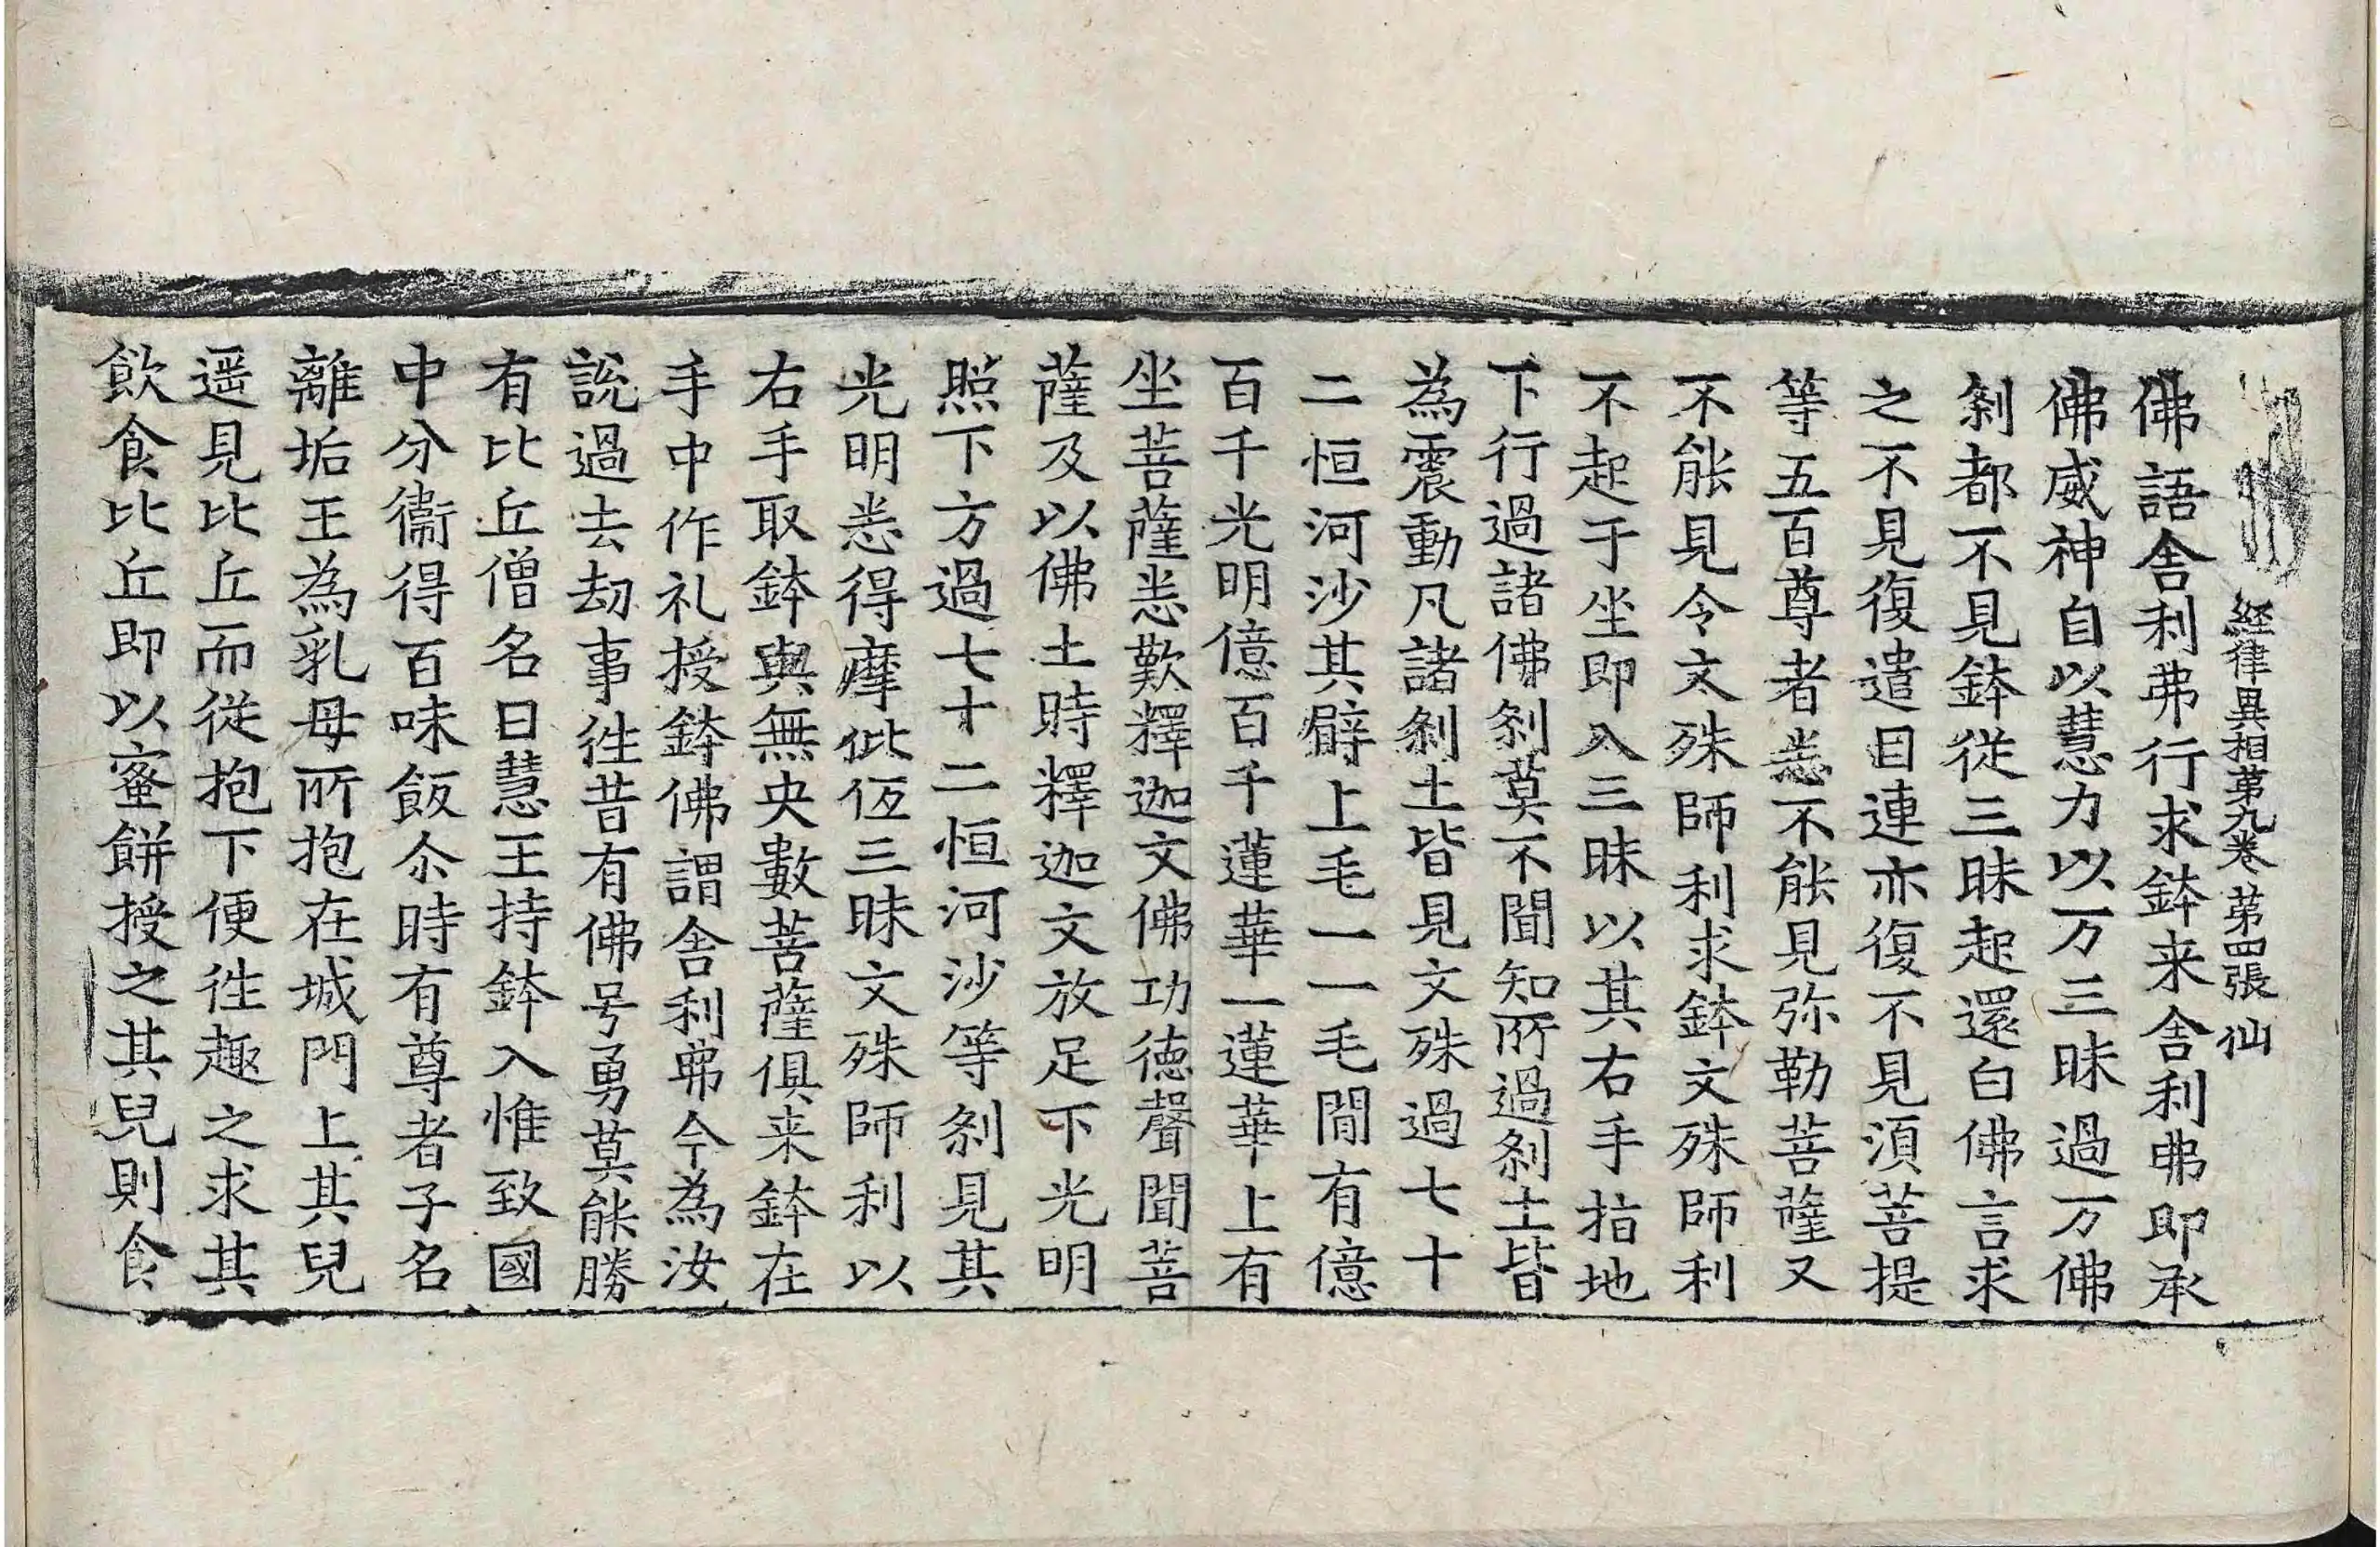 経律異相第九卷 第四張 仙
佛語舍利弗行求鉢来舍利弗即承
佛威神自以慧力以万三昧過万佛
剎都不見鉢從三昧起還白佛言求
之不見復遣目連亦復不見湏菩提
等五百尊者悉不能見弥勒菩薩又
不能見令文殊師利求鉢文殊師利
不起于坐即入三昧以其右手指地
下行過諸佛剎莫不聞知所過剎土皆
為震動凡諸剎土皆見文殊過七十
二恒河沙其臂上毛一一毛間有億
百千光明億百千蓮華一蓮華上有
坐菩薩悉歎釋迦文佛功德聲聞菩
薩及以佛土時釋迦文放足下光明
照下方過七十二恒河沙等剎見其
光明悉得摩毗仾三昧文殊師利以
右手取鉢與無央數菩薩俱来鉢在
手中作礼授鉢佛謂舍利弗今為汝
說過去劫事徃昔有佛号勇莫能勝
有比丘僧名曰慧王持鉢入惟致國
中分衞得百味飯尒時有尊者子名
離垢王為乳母所抱在城門上其兒
遥見比丘而從抱下便徃趣之求其
飲食比丘即以蜜餅授之其兒則食